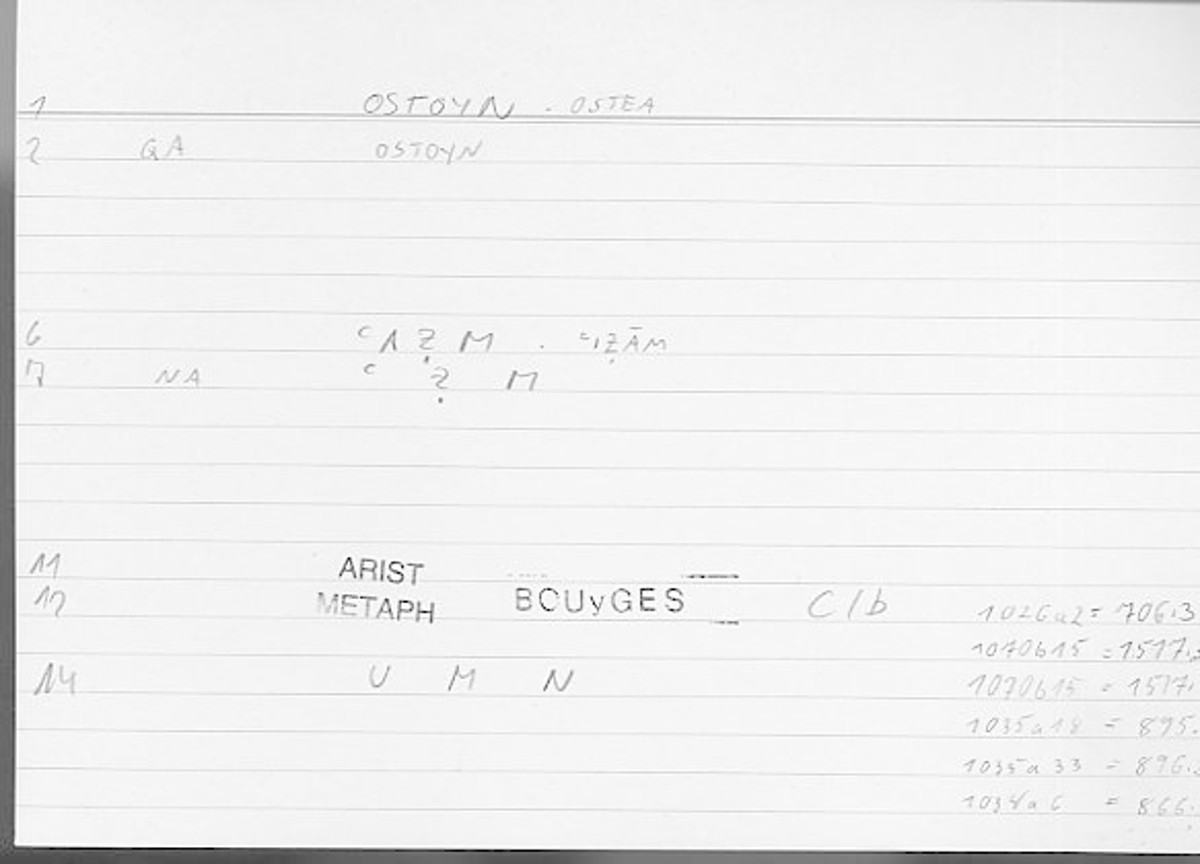 1 OSTOYN . OSTEA
2 GA OSTOYN
6 ʿ1Ẓ M . ʿIẒĀM
7 NA ʿ Ẓ M
11 ARIST
12 METAPH BOUyGES C/b 1026a2 = 706.3
1070b15 = 1517.
14 U M N 1070b15 = 1517.
1035a18 = 895.
1035a33 = 896.
= 866.